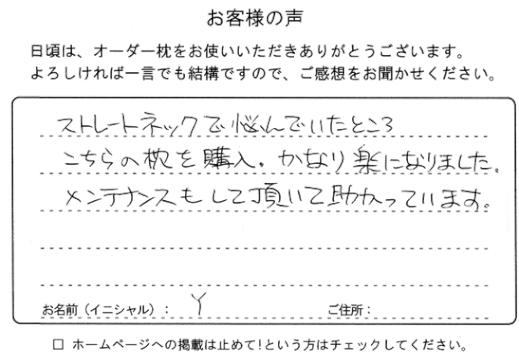 お客様の声
日頃は、オーダー枕をお使いいただきありがとうございます。
よろしければ一言でも結構ですので、ご感想をお聞かせください。
ストレートネックで悩んでいたところ
こちらの枕を購入。かなり楽になりました。
メンテナンスもして頂いて助かっています。
お名前（イニシャル）： Y ご住所：
□ ホームページへの掲載は止めて！という方はチェックしてください。